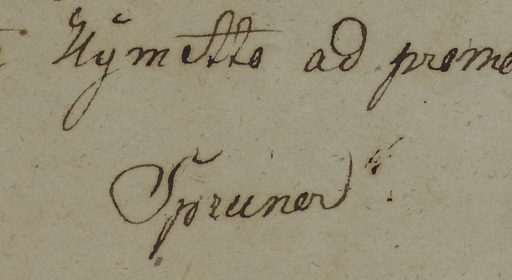 Hÿmetto ad prome
Spruner